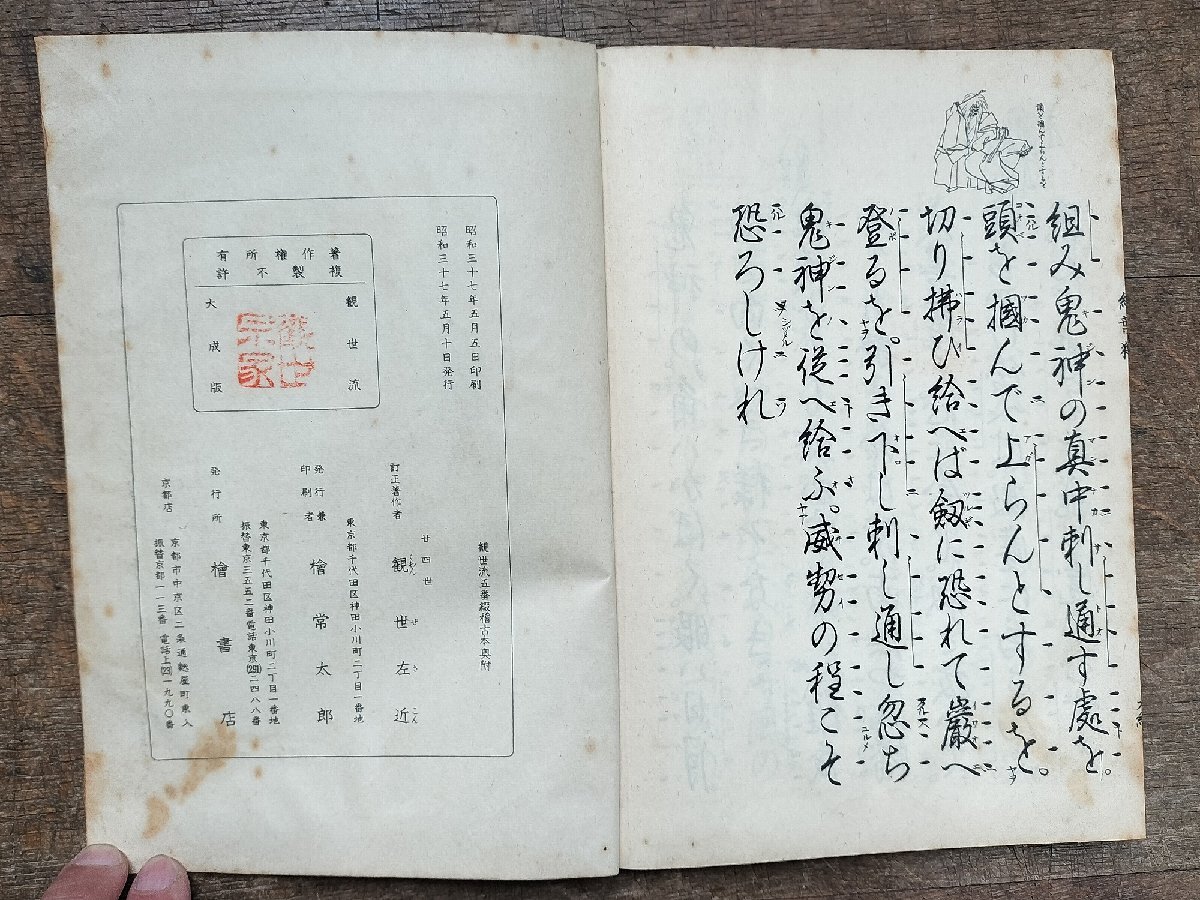 組み鬼神の真中刺し通す處を。
頭を摑んで上らんとするを。
切り拂ひ給へば劔に恐れて巖へ
登るを。引き下し刺し通し忽ち
鬼神を從へ給ふ。威勢の程こそ
恐ろしけれ
観世流五番綴稽古本奥附
昭和三十七年五月五日印刷
昭和三十七年五月十日発行
著作権所有
複製不許
観世流
大成版
観世宗家
訂正著作者
廿四世
観世左近
東京都千代田区神田小川町二丁目一番地
発行兼
印刷者
檜常太郎
東京都千代田区神田小川町二丁目一番地
振替東京三五五二番電話東京(291)二四八八番
発行所
檜書店
京都店
京都市中京区二条通麩屋町東入
振替京都一一三番 電話上(23)一九九〇番